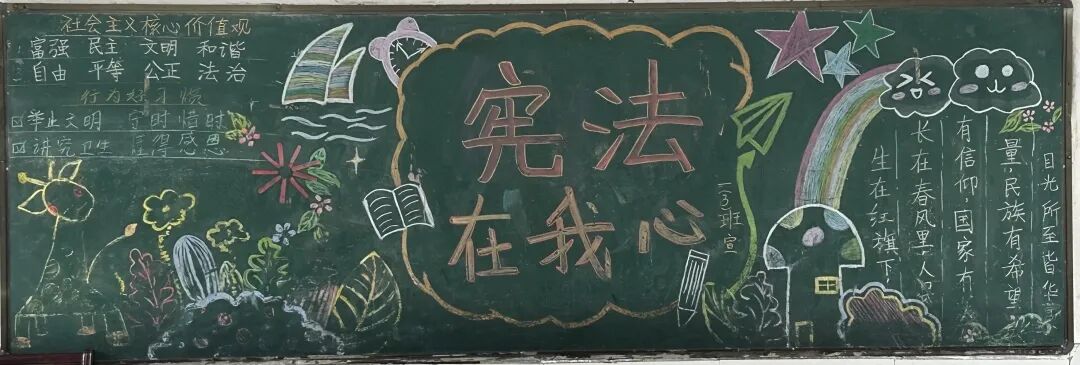 社会主义核心价值观
富强 民主 文明 和谐
自由 平等 公正 法治
行为好习惯
举止文明 守时惜时
讲究卫生 懂得感恩
宪法
在我心
一3班宣
生在红旗下
长在春风里,人民
有信仰,国家有
量,民族有希望,
目光所至皆华